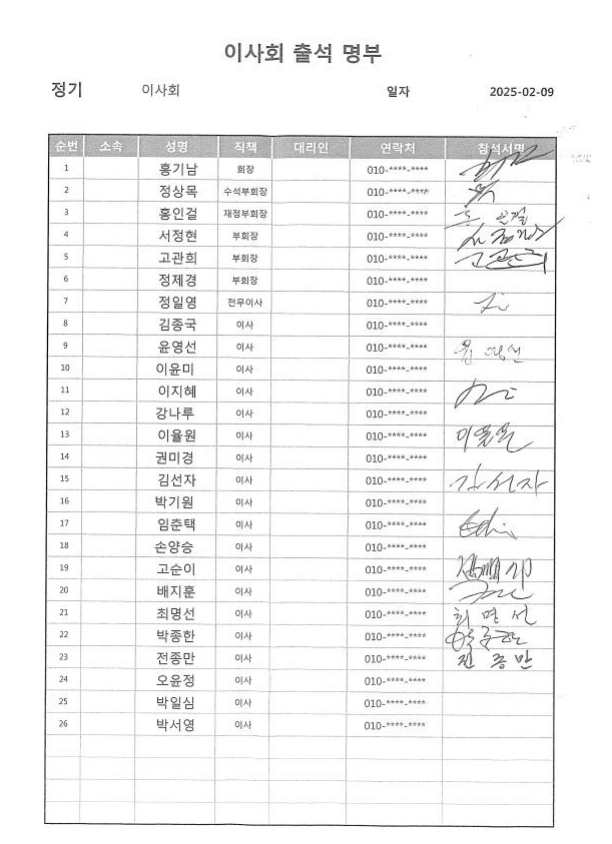 이사회 출석 명부
정기 이사회 일자 2025-02-09
순번 소속 성명 직책 대리인 연락처 참석서명
1 홍기남 회장 010-****-****
2 정상목 수석부회장 010-****-****
3 홍인걸 재정부회장 010-****-**** 홍인걸
4 서정현 부회장 010-****-**** 서정현
5 고관희 부회장 010-****-**** 고관희
6 정제경 부회장 010-****-****
7 정일영 전무이사 010-****-****
8 김종국 이사 010-****-****
9 윤영선 이사 010-****-**** 윤영선
10 이윤미 이사 010-****-****
11 이지혜 이사 010-****-****
12 강나루 이사 010-****-****
13 이율원 이사 010-****-**** 이율원
14 권미경 이사 010-****-****
15 김선자 이사 010-****-**** 김선자
16 박기원 이사 010-****-****
17 임춘택 이사 010-****-****
18 손양승 이사 010-****-****
19 고순이 이사 010-****-****
20 배지훈 이사 010-****-****
21 최명선 이사 010-****-**** 최명선
22 박종한 이사 010-****-**** 박종한
23 전종만 이사 010-****-**** 전종만
24 오윤정 이사 010-****-****
25 박일심 이사 010-****-****
26 박서영 이사 010-****-****